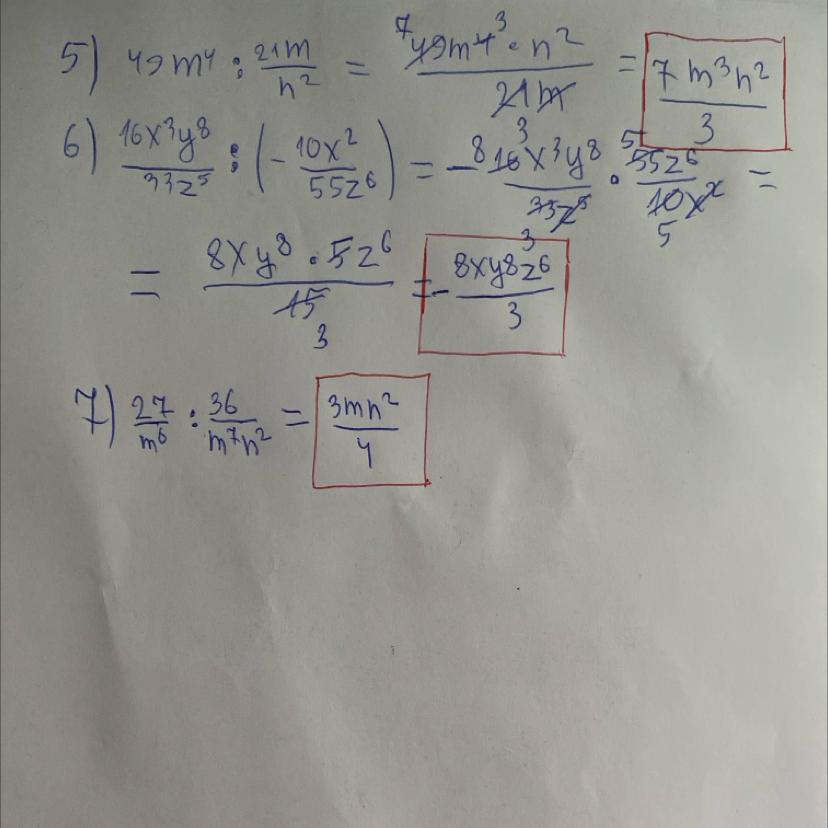 5) 49m⁴ : 21m/n² = ⁷49m⁴³ · n² / 21m 3 = 7m³n²/3
6) 16x³y⁸/33z⁵ : (-10x²/55z⁶) = -⁸16x³y⁸/33z⁵ 3 · ⁵55z⁶/10x² 5 =
= 8xy⁸ · 5z⁶/15 3 = -8xy⁸z⁶/3
7) 27/m⁶ : 36/m⁷n² = 3mn²/4